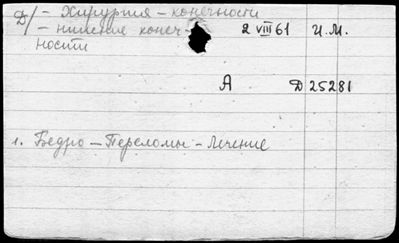 Д/ - Хирургия - конечности
- нижние конеч- 2 VIII 61 И.М.
ности
А Д 25281
1. Бедро - Переломы - Лечение